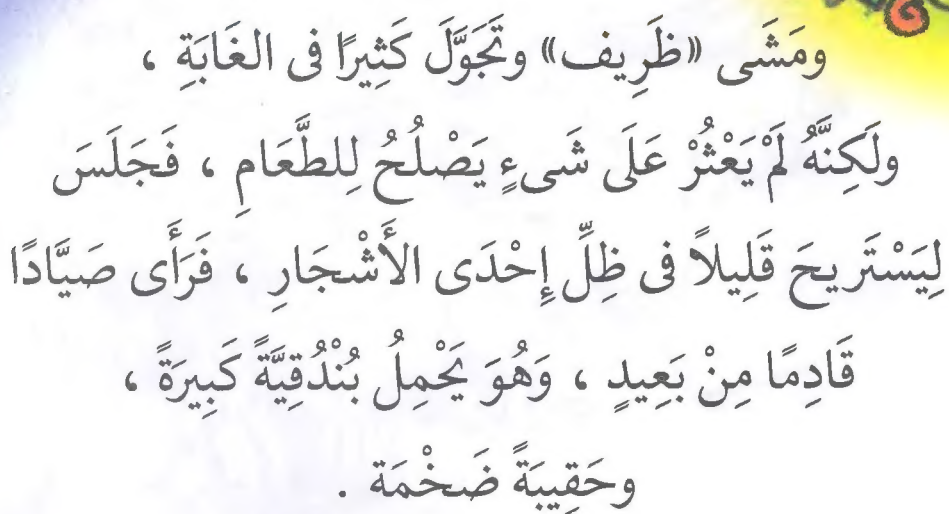 ومَشَى «ظَرِيف» وتَجَوَّلَ كَثِيرًا فى الغَابَةِ ،
ولَكِنَّهُ لَمْ يَعْثُرْ عَلَى شَىءٍ يَصْلُحُ لِلطَّعَامِ ، فَجَلَسَ
لِيَسْتَرِيحَ قَلِيلاً فى ظِلِّ إِحْدَى الأَشْجَارِ ، فَرَأَى صَيَّادًا
قَادِمًا مِنْ بَعِيدٍ ، وَهُوَ يَحْمِلُ بُنْدُقِيَّةً كَبِيرَةً ،
وحَقِيبَةً ضَخْمَة .